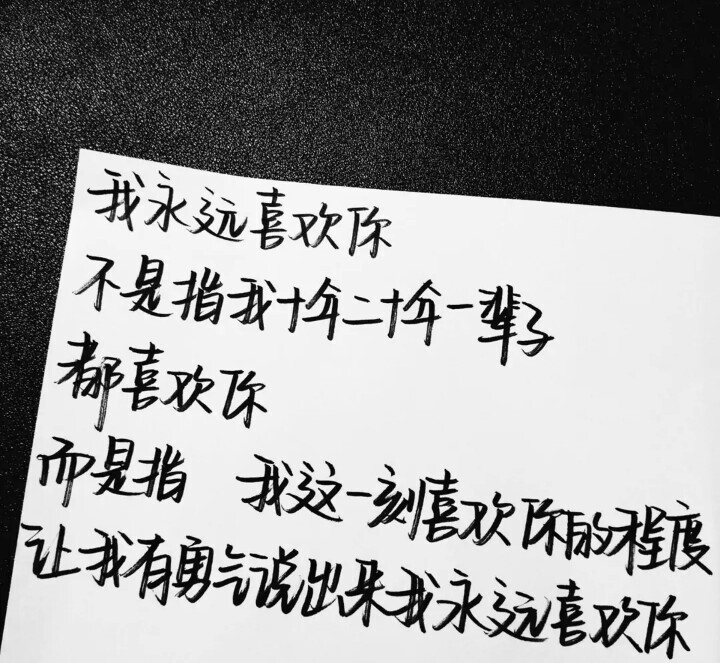 我永远喜欢你
不是指我十年二十年一辈子
都喜欢你
而是指 我这一刻喜欢你的程度
让我有勇气说出来我永远喜欢你